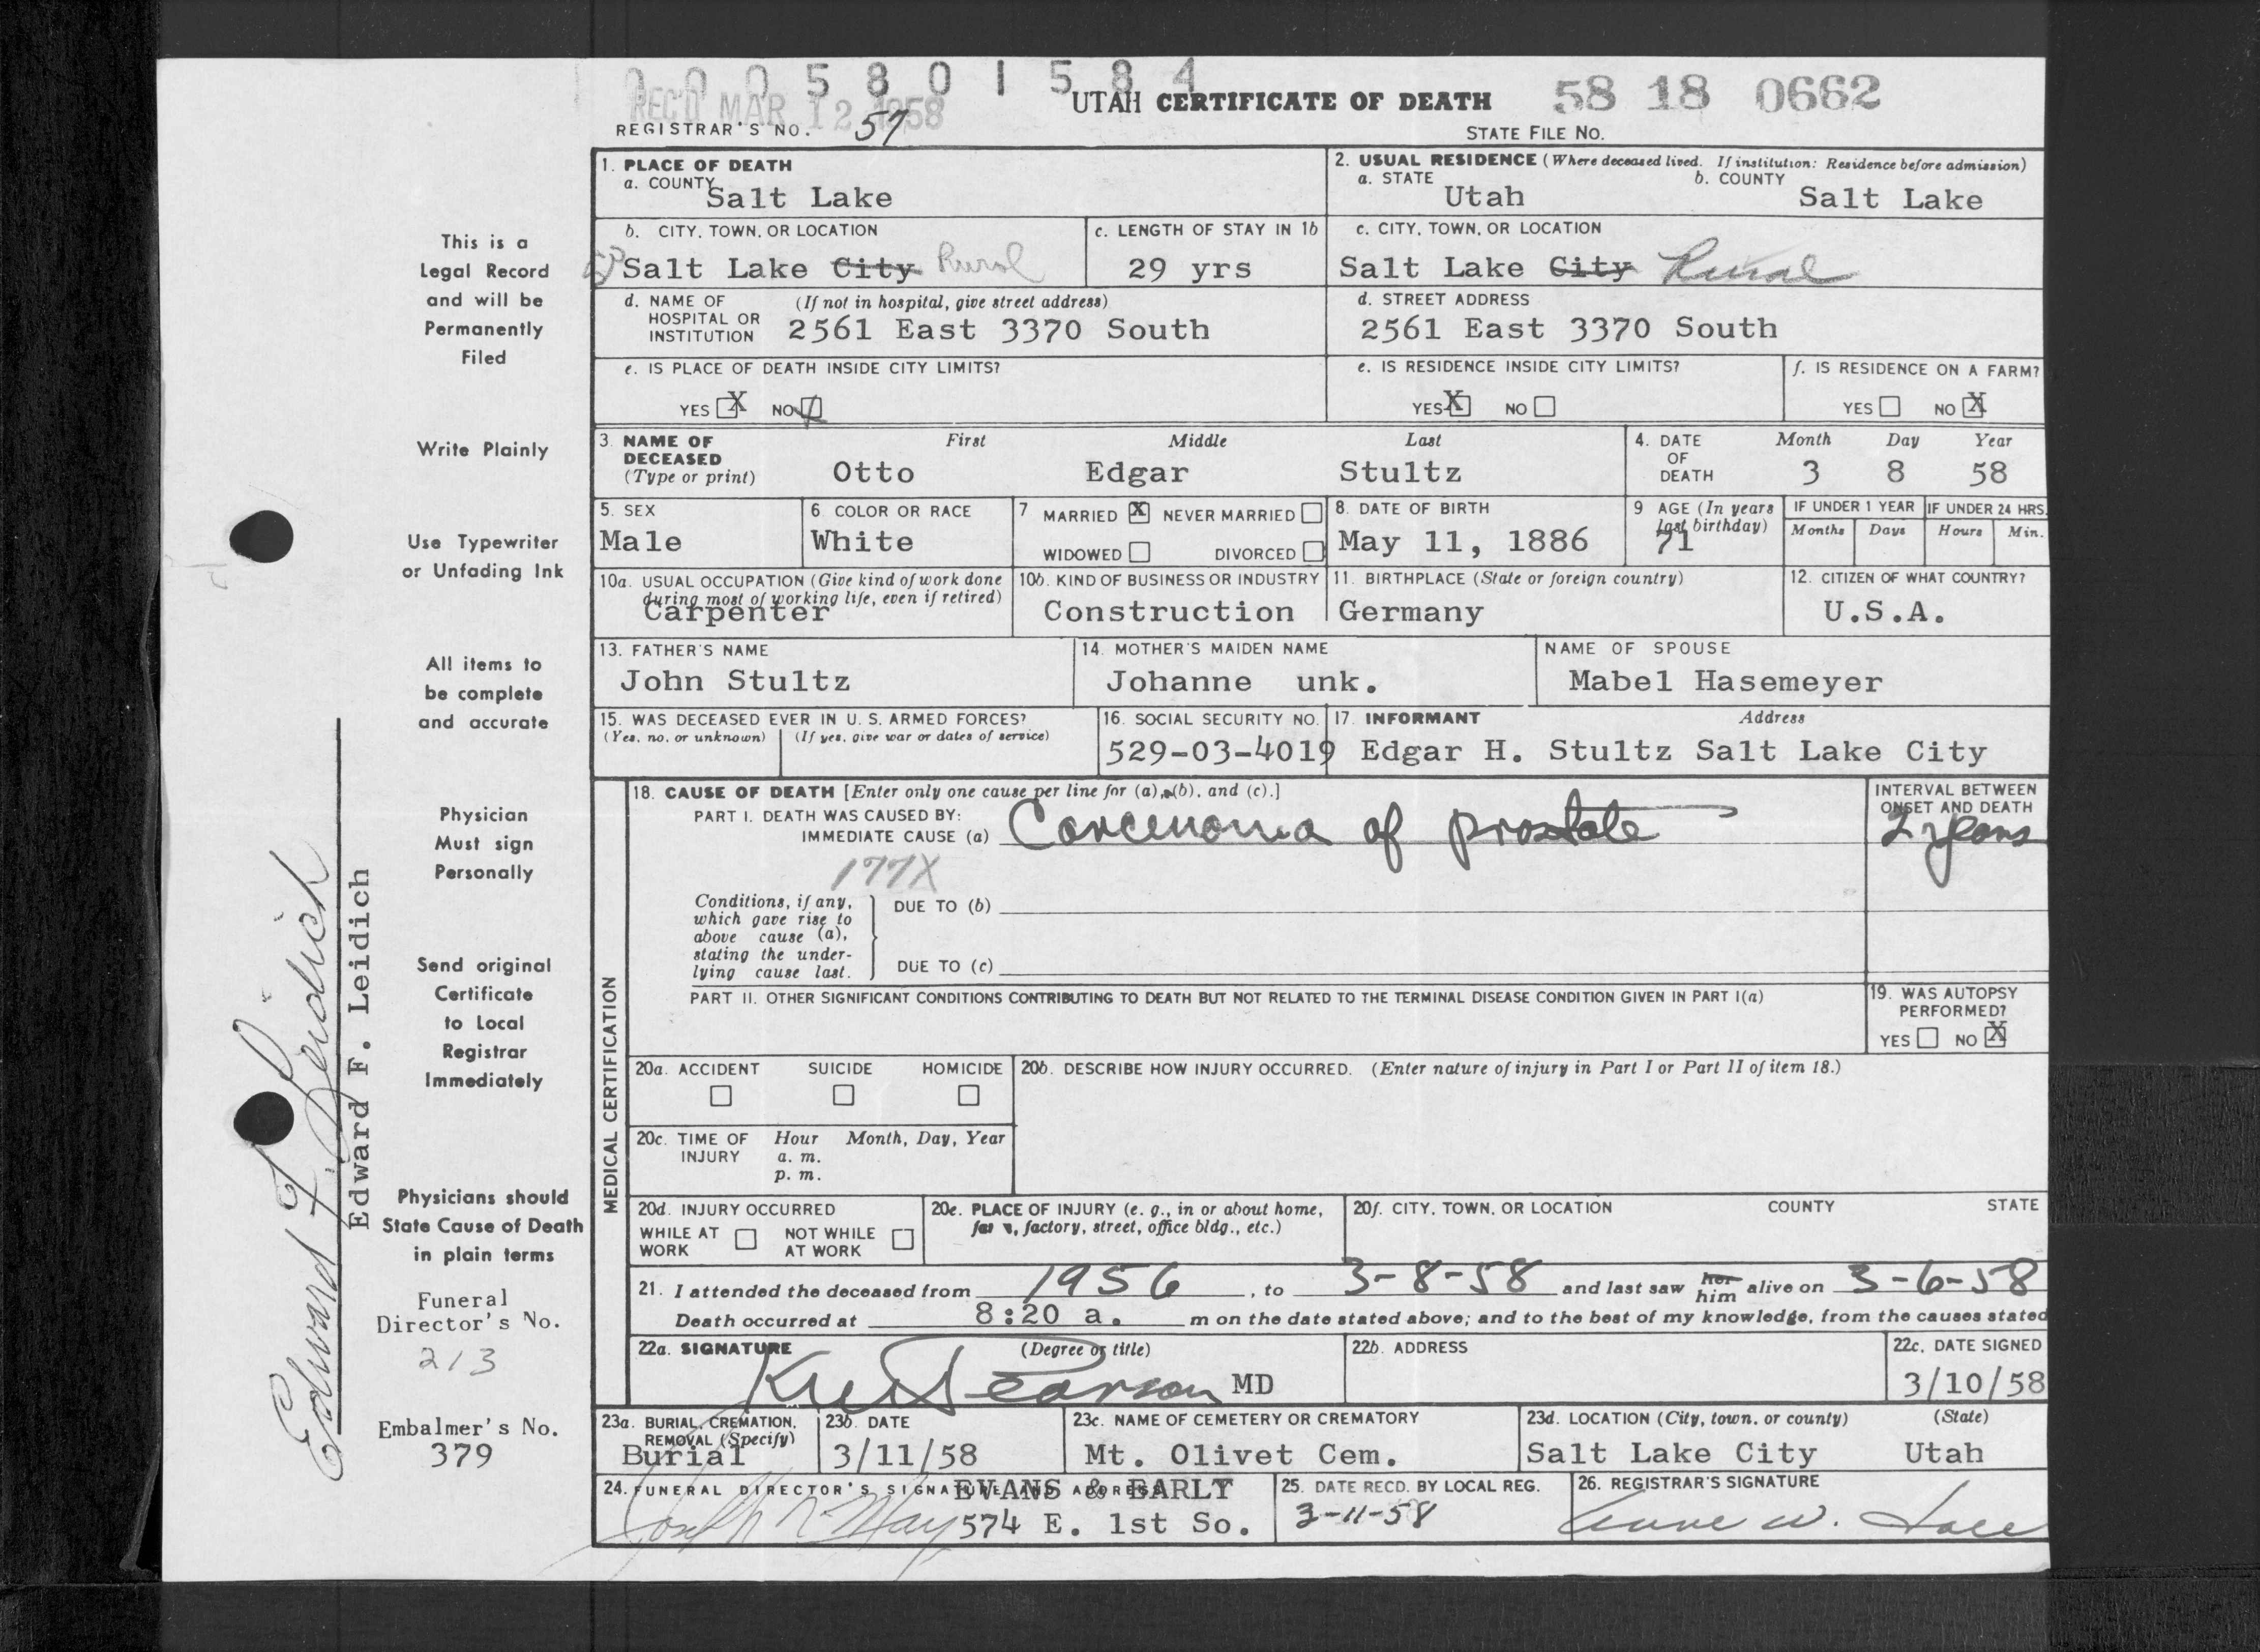 0 0 0 5 8 0 1 5 8 4
REC'D MAR 12 1958
UTAH CERTIFICATE OF DEATH
58 18 0662
REGISTRAR'S NO. 57
STATE FILE NO.
1. PLACE OF DEATH
a. COUNTY
Salt Lake
2. USUAL RESIDENCE (Where deceased lived. If institution: Residence before admission)
a. STATE
Utah
b. COUNTY
Salt Lake
b. CITY, TOWN, OR LOCATION
Salt Lake City Rural
c. LENGTH OF STAY IN 1b
29 yrs
c. CITY, TOWN, OR LOCATION
Salt Lake City Rural
d. NAME OF HOSPITAL OR INSTITUTION
(If not in hospital, give street address)
2561 East 3370 South
d. STREET ADDRESS
2561 East 3370 South
e. IS PLACE OF DEATH INSIDE CITY LIMITS?
YES X NO X
e. IS RESIDENCE INSIDE CITY LIMITS?
YES X NO
f. IS RESIDENCE ON A FARM?
YES NO X
3. NAME OF DECEASED (Type or print)
First Middle Last
Otto Edgar Stultz
4. DATE OF DEATH
Month Day Year
3 8 58
5. SEX
Male
6. COLOR OR RACE
White
7 MARRIED X NEVER MARRIED
WIDOWED DIVORCED
8. DATE OF BIRTH
May 11, 1886
9 AGE (In years last birthday)
71
IF UNDER 1 YEAR
Months Days
IF UNDER 24 HRS.
Hours Min.
10a. USUAL OCCUPATION (Give kind of work done during most of working life, even if retired)
Carpenter
10b. KIND OF BUSINESS OR INDUSTRY
Construction
11. BIRTHPLACE (State or foreign country)
Germany
12. CITIZEN OF WHAT COUNTRY?
U.S.A.
13. FATHER'S NAME
John Stultz
14. MOTHER'S MAIDEN NAME
Johanne unk.
NAME OF SPOUSE
Mabel Hasemeyer
15. WAS DECEASED EVER IN U. S. ARMED FORCES?
(Yes, no, or unknown) (If yes, give war or dates of service)
16. SOCIAL SECURITY NO.
529-03-4019
17. INFORMANT Address
Edgar H. Stultz Salt Lake City
MEDICAL CERTIFICATION
18. CAUSE OF DEATH [Enter only one cause per line for (a), (b), and (c).]
PART I. DEATH WAS CAUSED BY:
IMMEDIATE CAUSE (a) Carcenoma of prostate
177X
INTERVAL BETWEEN ONSET AND DEATH
2 years
Conditions, if any, which gave rise to above cause (a), stating the underlying cause last.
DUE TO (b)
DUE TO (c)
PART II. OTHER SIGNIFICANT CONDITIONS CONTRIBUTING TO DEATH BUT NOT RELATED TO THE TERMINAL DISEASE CONDITION GIVEN IN PART I(a)
19. WAS AUTOPSY PERFORMED?
YES NO X
20a. ACCIDENT SUICIDE HOMICIDE
20b. DESCRIBE HOW INJURY OCCURRED. (Enter nature of injury in Part I or Part II of item 18.)
20c. TIME OF INJURY
Hour Month, Day, Year
a. m.
p. m.
20d. INJURY OCCURRED
WHILE AT WORK NOT WHILE AT WORK
20e. PLACE OF INJURY (e. g., in or about home, factory, street, office bldg., etc.)
20f. CITY, TOWN, OR LOCATION COUNTY STATE
21. I attended the deceased from 1956, to 3-8-58 and last saw her him alive on 3-6-58
Death occurred at 8:20 a. m on the date stated above; and to the best of my knowledge, from the causes stated
22a. SIGNATURE (Degree or title)
Pearson MD
22b. ADDRESS
22c. DATE SIGNED
3/10/58
23a. BURIAL, CREMATION, REMOVAL (Specify)
Burial
23b. DATE
3/11/58
23c. NAME OF CEMETERY OR CREMATORY
Mt. Olivet Cem.
23d. LOCATION (City, town, or county) (State)
Salt Lake City Utah
24. FUNERAL DIRECTOR'S SIGNATURE AND ADDRESS
EVANS & EARLY
574 E. 1st So.
25. DATE RECD. BY LOCAL REG.
3-11-58
26. REGISTRAR'S SIGNATURE
This is a
Legal Record
and will be
Permanently
Filed
Write Plainly
Use Typewriter
or Unfading Ink
All items to
be complete
and accurate
Physician
Must sign
Personally
Send original
Certificate
to Local
Registrar
Immediately
Physicians should
State Cause of Death
in plain terms
Funeral
Director's No.
213
Embalmer's No.
379
Edward F Leidich
Edward F. Leidich